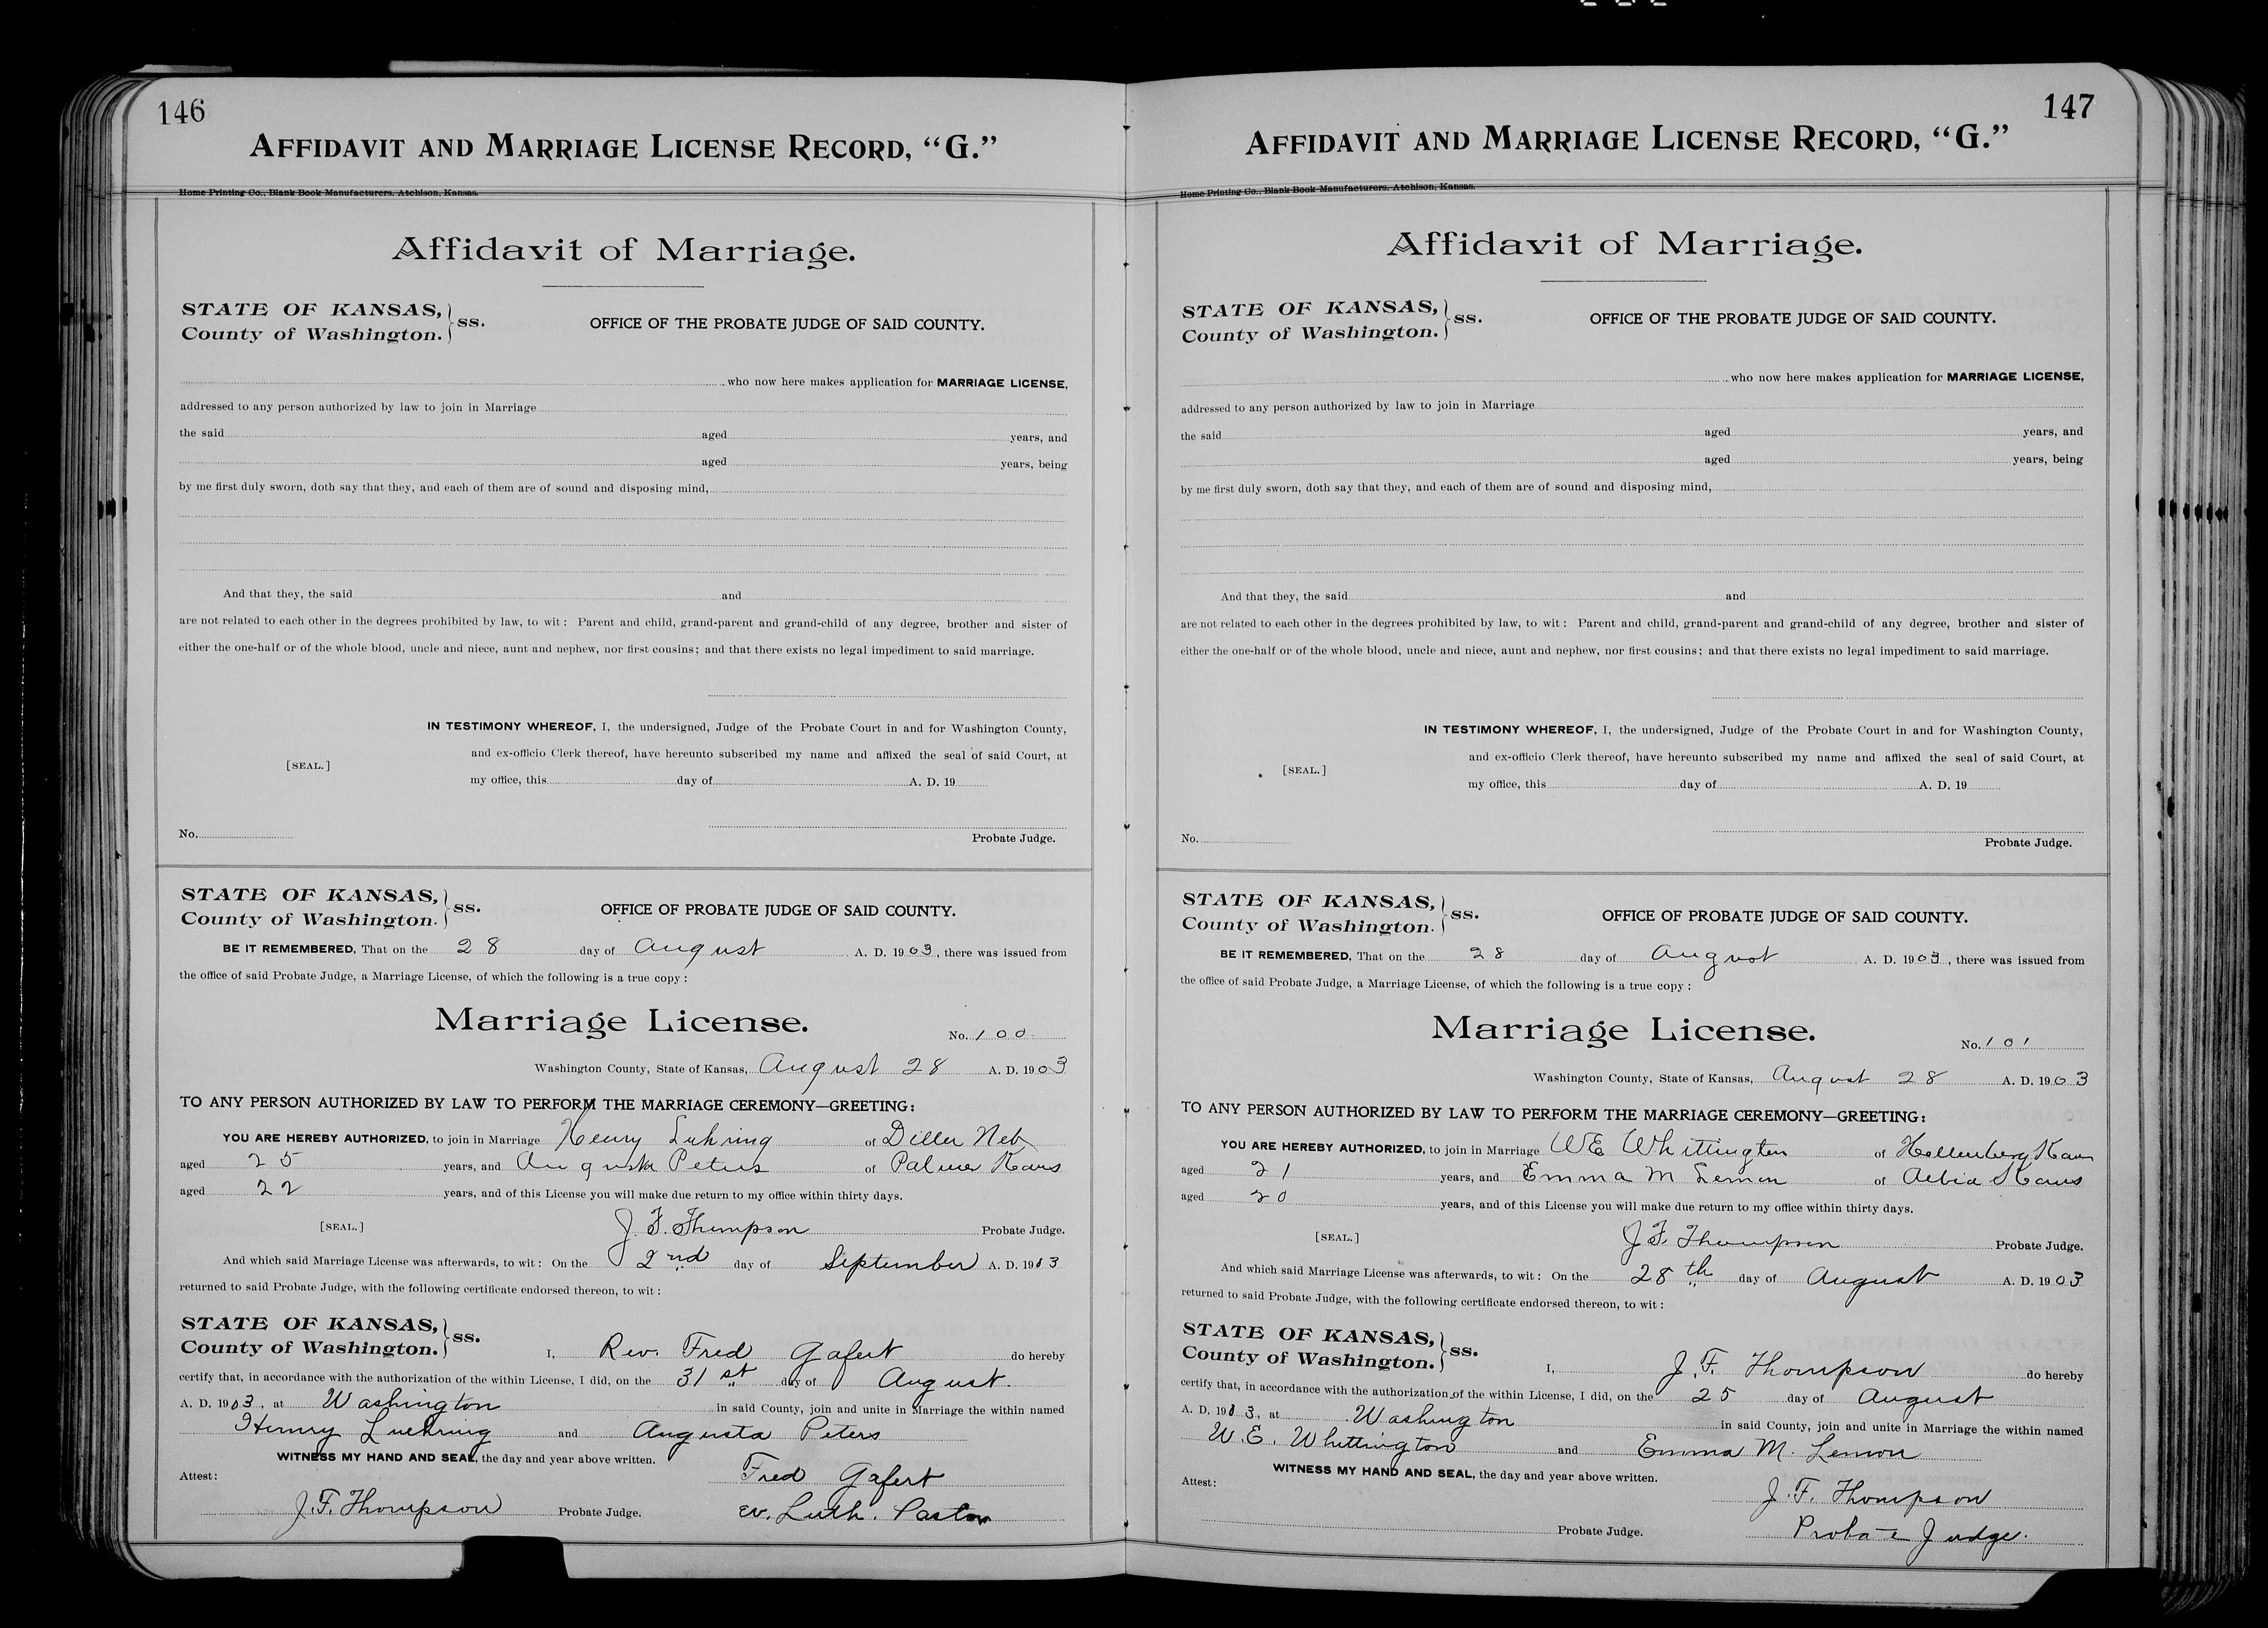 146
AFFIDAVIT AND MARRIAGE LICENSE RECORD, “G.”
Home Printing Co., Blank Book Manufacturers, Atchison, Kansas.
Affidavit of Marriage.
STATE OF KANSAS,
County of Washington. } ss.
OFFICE OF THE PROBATE JUDGE OF SAID COUNTY.
who now here makes application for MARRIAGE LICENSE,
addressed to any person authorized by law to join in Marriage
the said aged years, and
aged years, being
by me first duly sworn, doth say that they, and each of them are of sound and disposing mind,
And that they, the said and
are not related to each other in the degrees prohibited by law, to wit: Parent and child, grand-parent and grand-child of any degree, brother and sister of
either the one-half or of the whole blood, uncle and niece, aunt and nephew, nor first cousins; and that there exists no legal impediment to said marriage.
IN TESTIMONY WHEREOF, I, the undersigned, Judge of the Probate Court in and for Washington County,
and ex-officio Clerk thereof, have hereunto subscribed my name and affixed the seal of said Court, at
[SEAL.]
my office, this day of A. D. 19
No.
Probate Judge.
STATE OF KANSAS,
County of Washington. } ss.
OFFICE OF PROBATE JUDGE OF SAID COUNTY.
BE IT REMEMBERED, That on the 28 day of August A. D. 1903, there was issued from
the office of said Probate Judge, a Marriage License, of which the following is a true copy:
Marriage License.
No. 100
Washington County, State of Kansas, August 28 A. D. 1903
TO ANY PERSON AUTHORIZED BY LAW TO PERFORM THE MARRIAGE CEREMONY—GREETING:
YOU ARE HEREBY AUTHORIZED, to join in Marriage Henry Luhring of Diller Neb
aged 25 years, and Augusta Peters of Palmer Kans
aged 22 years, and of this License you will make due return to my office within thirty days.
[SEAL.] J. F. Thompson Probate Judge.
And which said Marriage License was afterwards, to wit: On the 2nd day of September A. D. 1903
returned to said Probate Judge, with the following certificate endorsed thereon, to wit:
STATE OF KANSAS,
County of Washington. } ss.
I, Rev. Fred Gafert do hereby
certify that, in accordance with the authorization of the within License, I did, on the 31st day of August.
A. D. 1903, at Washington in said County, join and unite in Marriage the within named
Henry Luehring and Augusta Peters
WITNESS MY HAND AND SEAL, the day and year above written.
Attest: Fred Gafert
J. F. Thompson Probate Judge. Ev. Luth. Pastor
147
AFFIDAVIT AND MARRIAGE LICENSE RECORD, “G.”
Home Printing Co., Blank Book Manufacturers, Atchison, Kansas.
Affidavit of Marriage.
STATE OF KANSAS,
County of Washington. } ss.
OFFICE OF THE PROBATE JUDGE OF SAID COUNTY.
who now here makes application for MARRIAGE LICENSE,
addressed to any person authorized by law to join in Marriage
the said aged years, and
aged years, being
by me first duly sworn, doth say that they, and each of them are of sound and disposing mind,
And that they, the said and
are not related to each other in the degrees prohibited by law, to wit: Parent and child, grand-parent and grand-child of any degree, brother and sister of
either the one-half or of the whole blood, uncle and niece, aunt and nephew, nor first cousins; and that there exists no legal impediment to said marriage.
IN TESTIMONY WHEREOF, I, the undersigned, Judge of the Probate Court in and for Washington County,
and ex-officio Clerk thereof, have hereunto subscribed my name and affixed the seal of said Court, at
[SEAL.]
my office, this day of A. D. 19
No.
Probate Judge.
STATE OF KANSAS,
County of Washington. } ss.
OFFICE OF PROBATE JUDGE OF SAID COUNTY.
BE IT REMEMBERED, That on the 28 day of August A. D. 1903, there was issued from
the office of said Probate Judge, a Marriage License, of which the following is a true copy:
Marriage License.
No. 101
Washington County, State of Kansas, August 28 A. D. 1903
TO ANY PERSON AUTHORIZED BY LAW TO PERFORM THE MARRIAGE CEREMONY—GREETING:
YOU ARE HEREBY AUTHORIZED, to join in Marriage W E Whittington of Hollenberg Kans
aged 21 years, and Emma M Lemon of Albia Kans
aged 20 years, and of this License you will make due return to my office within thirty days.
[SEAL.] J. F. Thompson Probate Judge.
And which said Marriage License was afterwards, to wit: On the 28th day of August A. D. 1903
returned to said Probate Judge, with the following certificate endorsed thereon, to wit:
STATE OF KANSAS,
County of Washington. } ss.
I, J. F. Thompson do hereby
certify that, in accordance with the authorization of the within License, I did, on the 25 day of August
A. D. 1903, at Washington in said County, join and unite in Marriage the within named
W. E. Whittington and Emma M. Lemon
WITNESS MY HAND AND SEAL, the day and year above written.
Attest: J. F. Thompson
Probate Judge. Probate Judge.